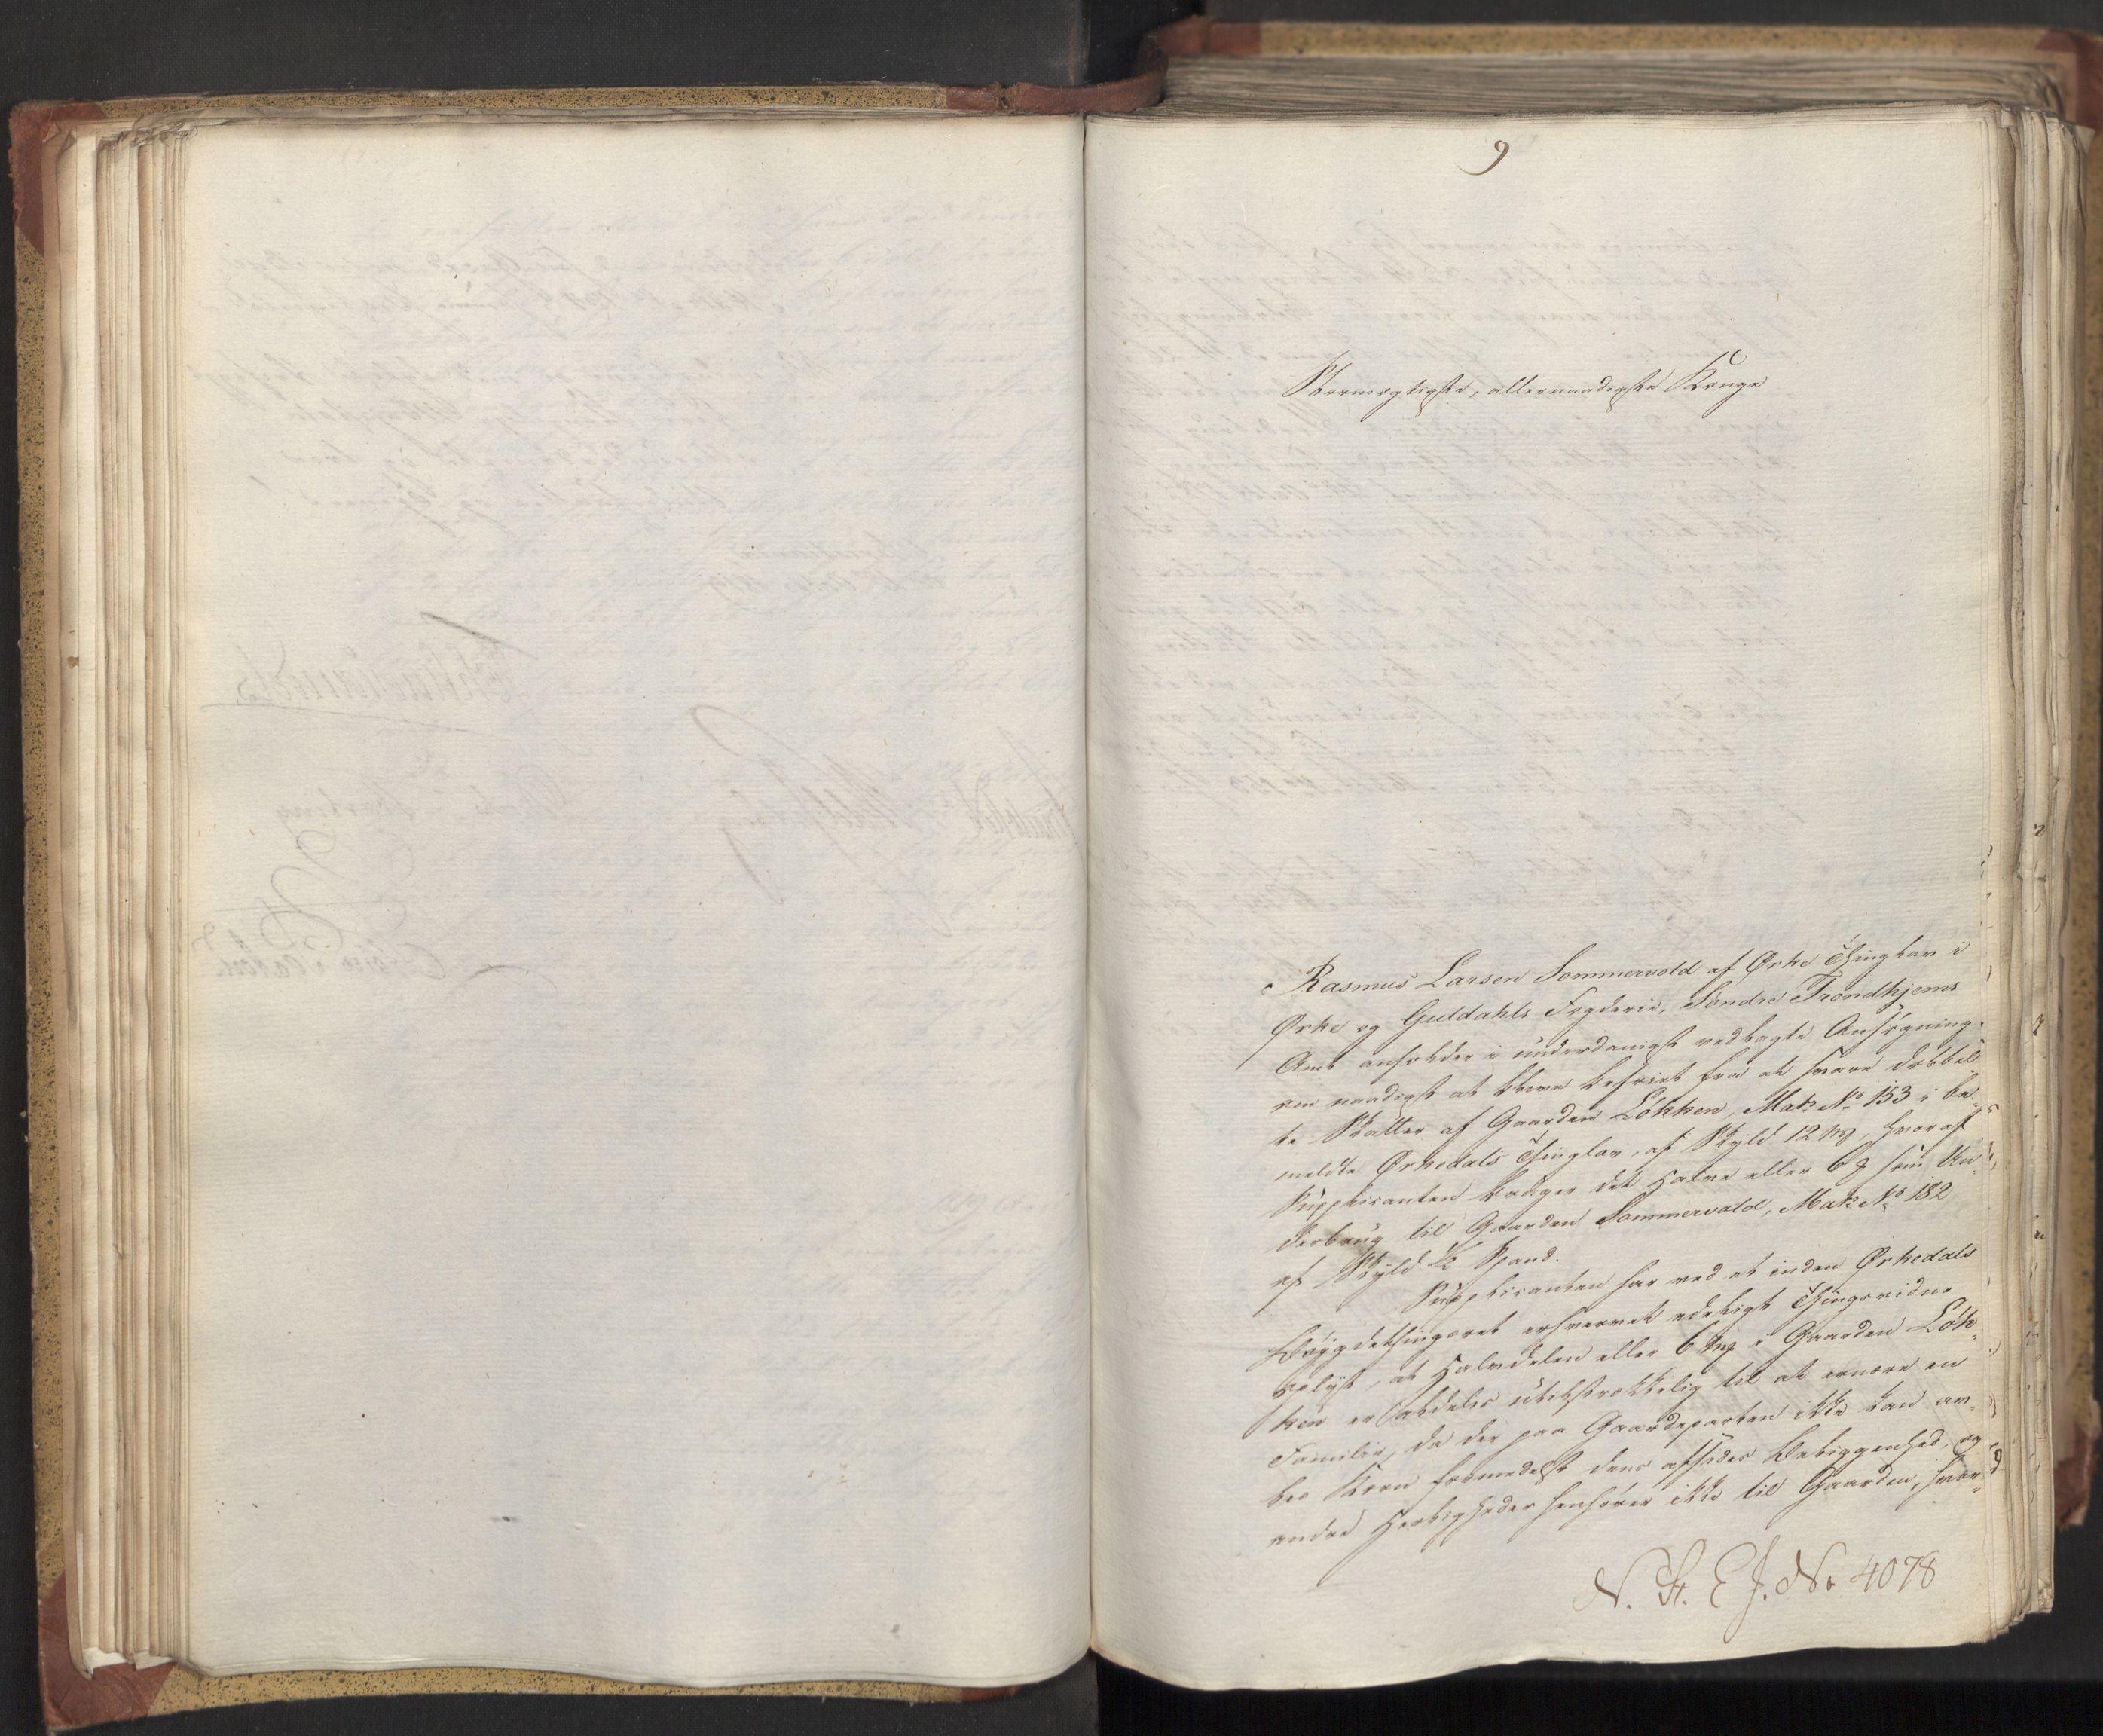 9
Stormægtigste, allernaadigste Konge
Rasmus Larsen Sommervold af Ørke Thinglav i
Ørke og Guldahls Fogderie, Søndre Trondhjems
Amt ansøker i underdanigst vedlagte Ansøgning
om naadigst at blive befriet fra at svare dobbel-
te Skatter af Gaarden Løkken, Mat: No 153 i be-
meldte Ørkedals Thinglav, af Skyld 12 mg, hvoraf
Supplicanten bruger det Halve eller 6 mg som Un-
derbrug til Gaarden Sommervold, Mat: No 182
af Skyld 1/2 Spand.
Supplicanten har ved et inden Ørkedals
Bøygdethingsret erhvervet edeligt Thingsvidne
oplyst, at Halvdelen eller 6 mg i Gaarden Løk-
ken er aldeles utilstrækkelig til at ernære en
Familie, da der paa Gaardeparten ikke kan av-
les Korn formedelst dens afsides Beliggenhed, og
andre Herligheder henhører ikke til Gaarden, hvor-
N. St. E J. No 4078